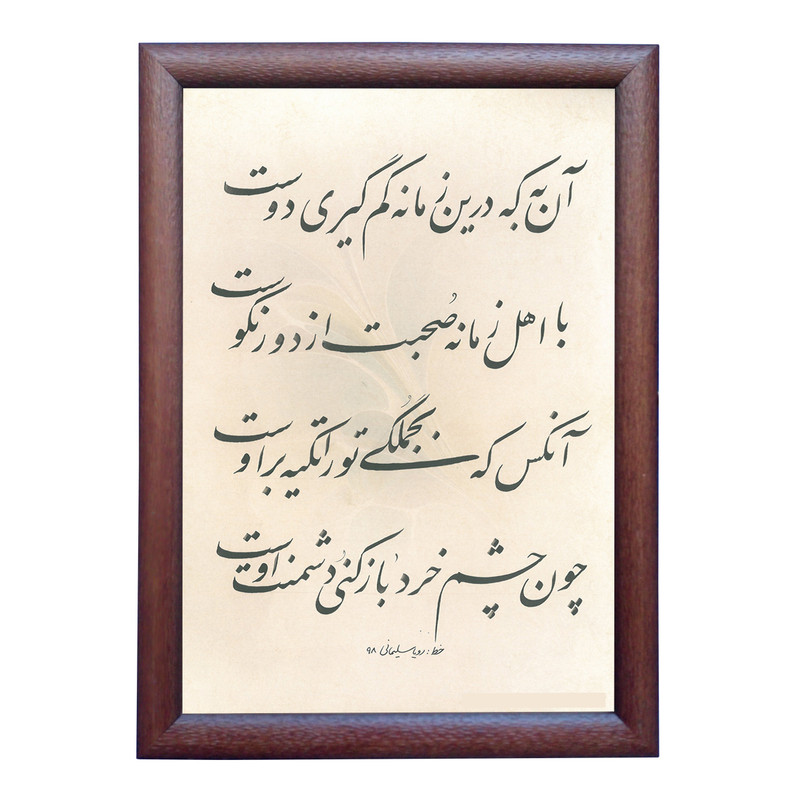 آن به که درین زمانه کم گیری دوست
با اهل زمانه صُحبت از دور نکوست
آنکس که بجُملگی تو را تکیه بر اوست
چون چشم خرد باز کنی دُشمنت اوست
خط: رویا سلیمانی ۹۸